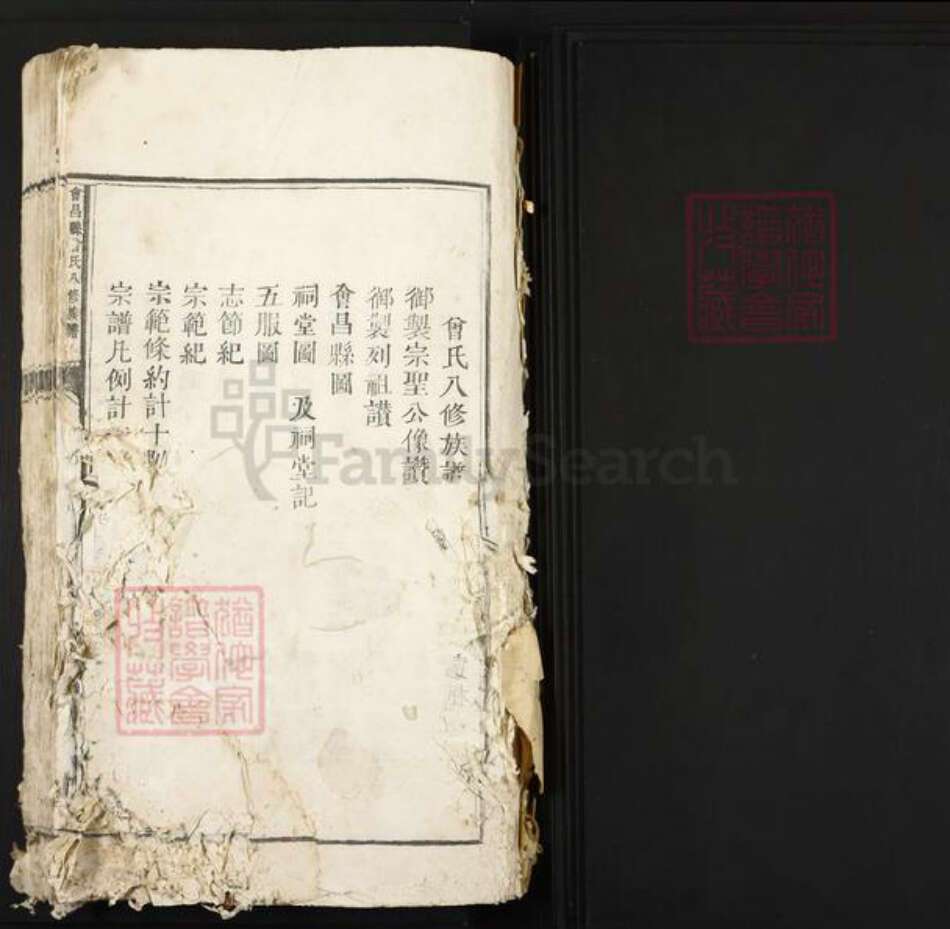 曾氏八修族譜
御製宗聖公像讚
御製列祖讚
會昌縣圖
祠堂圖 及祠堂記
五服圖
志節紀
宗範紀
宗範條約計十則
宗譜凡例計
會昌縣曾氏八修族譜
猶他家
譜學會
特藏
猶他家
譜學會
特藏
FamilySearch